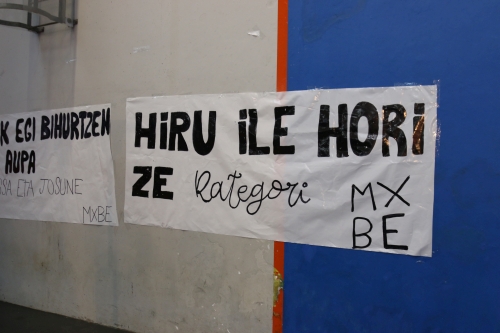 K EGI BIHURTZEN
AUPA
SA ETA JOSUNE
MXBE
HiRU iLE HORi
ZE Kategori
MX
BE